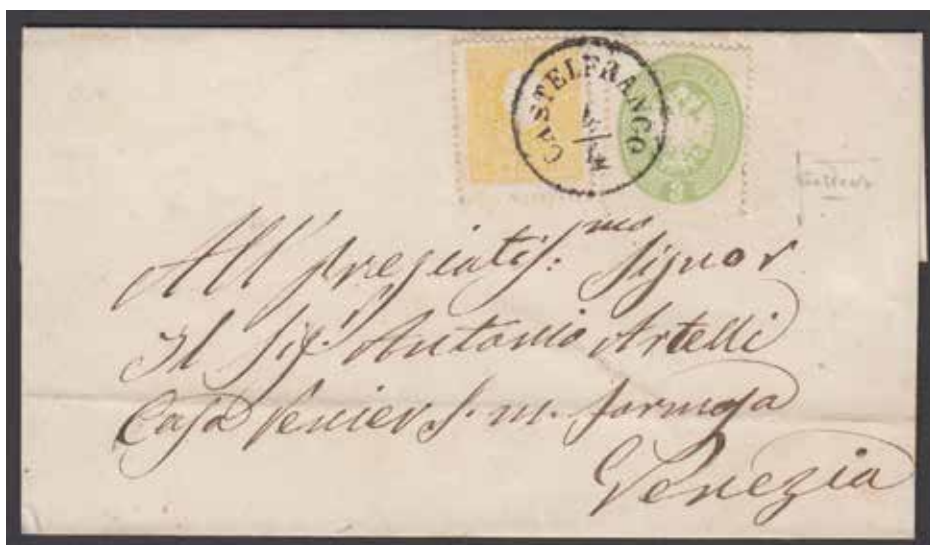 CASTELFRANCO
4/4
3
All' pregiatiſ.mo Signor
Il Sig.r Antonio Artelli
Caſa Venier S. m. formoſa
Venezia